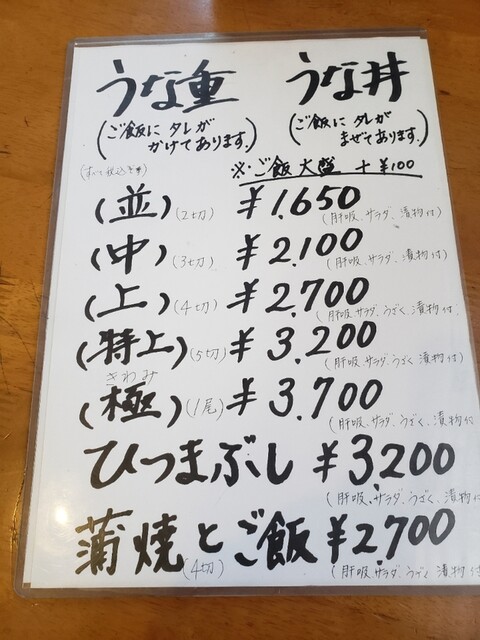 うな重 うな丼
(ご飯に タレが かけてあります。) (ご飯に タレが まぜてあります。)
※ご飯 大盛 + ¥100
(並)(2切) ¥1,650 (肝吸、サラダ、漬物付)
(中)(3切) ¥2,100 (肝吸、サラダ、漬物付)
(上)(4切) ¥2,700 (肝吸、サラダ、うざく、漬物付)
(特上)(5切) ¥3,200 (肝吸、サラダ、うざく、漬物付)
きわみ
(極)(1尾) ¥3,700 (肝吸、サラダ、うざく、漬物付
ひつまぶし ¥3,200 (肝吸、サラダ、うざく、漬物付
蒲焼とご飯 ¥2,700
(4切) (肝吸、サラダ、うざく、漬物付